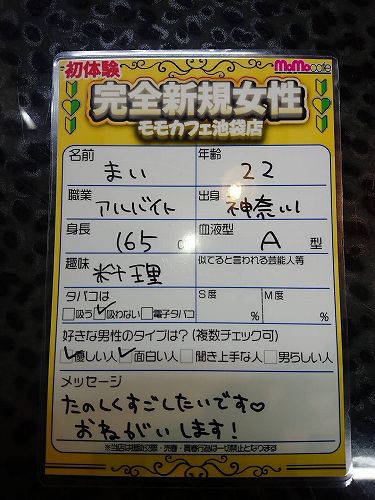 初体験 MoMo cafe
完全新規女性
モモカフェ池袋店
名前 まい 年齢 22
職業 アルバイト 出身 神奈川
身長 165 c 血液型 A 型
趣味 料理 似てると言われる芸能人等
タバコは S度 M度
□吸う ☑吸わない □電子タバコ % %
好きな男性のタイプは?(複数チェック可)
☑優しい人 ☑面白い人 □聞き上手な人 □男らしい人
メッセージ
たのしくすごしたいです♡
おねがいします!
※当店は援助交際・売春・買春行為は一切禁止となります